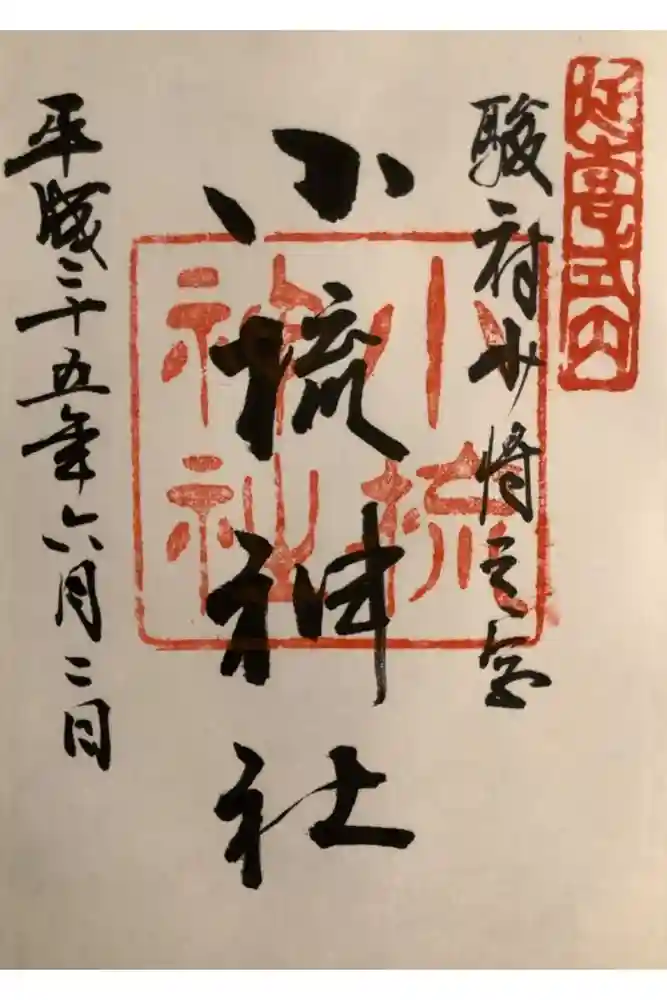 延喜式内
駿府少将之宮
小梳神社
小梳神社
平成二十五年六月二日